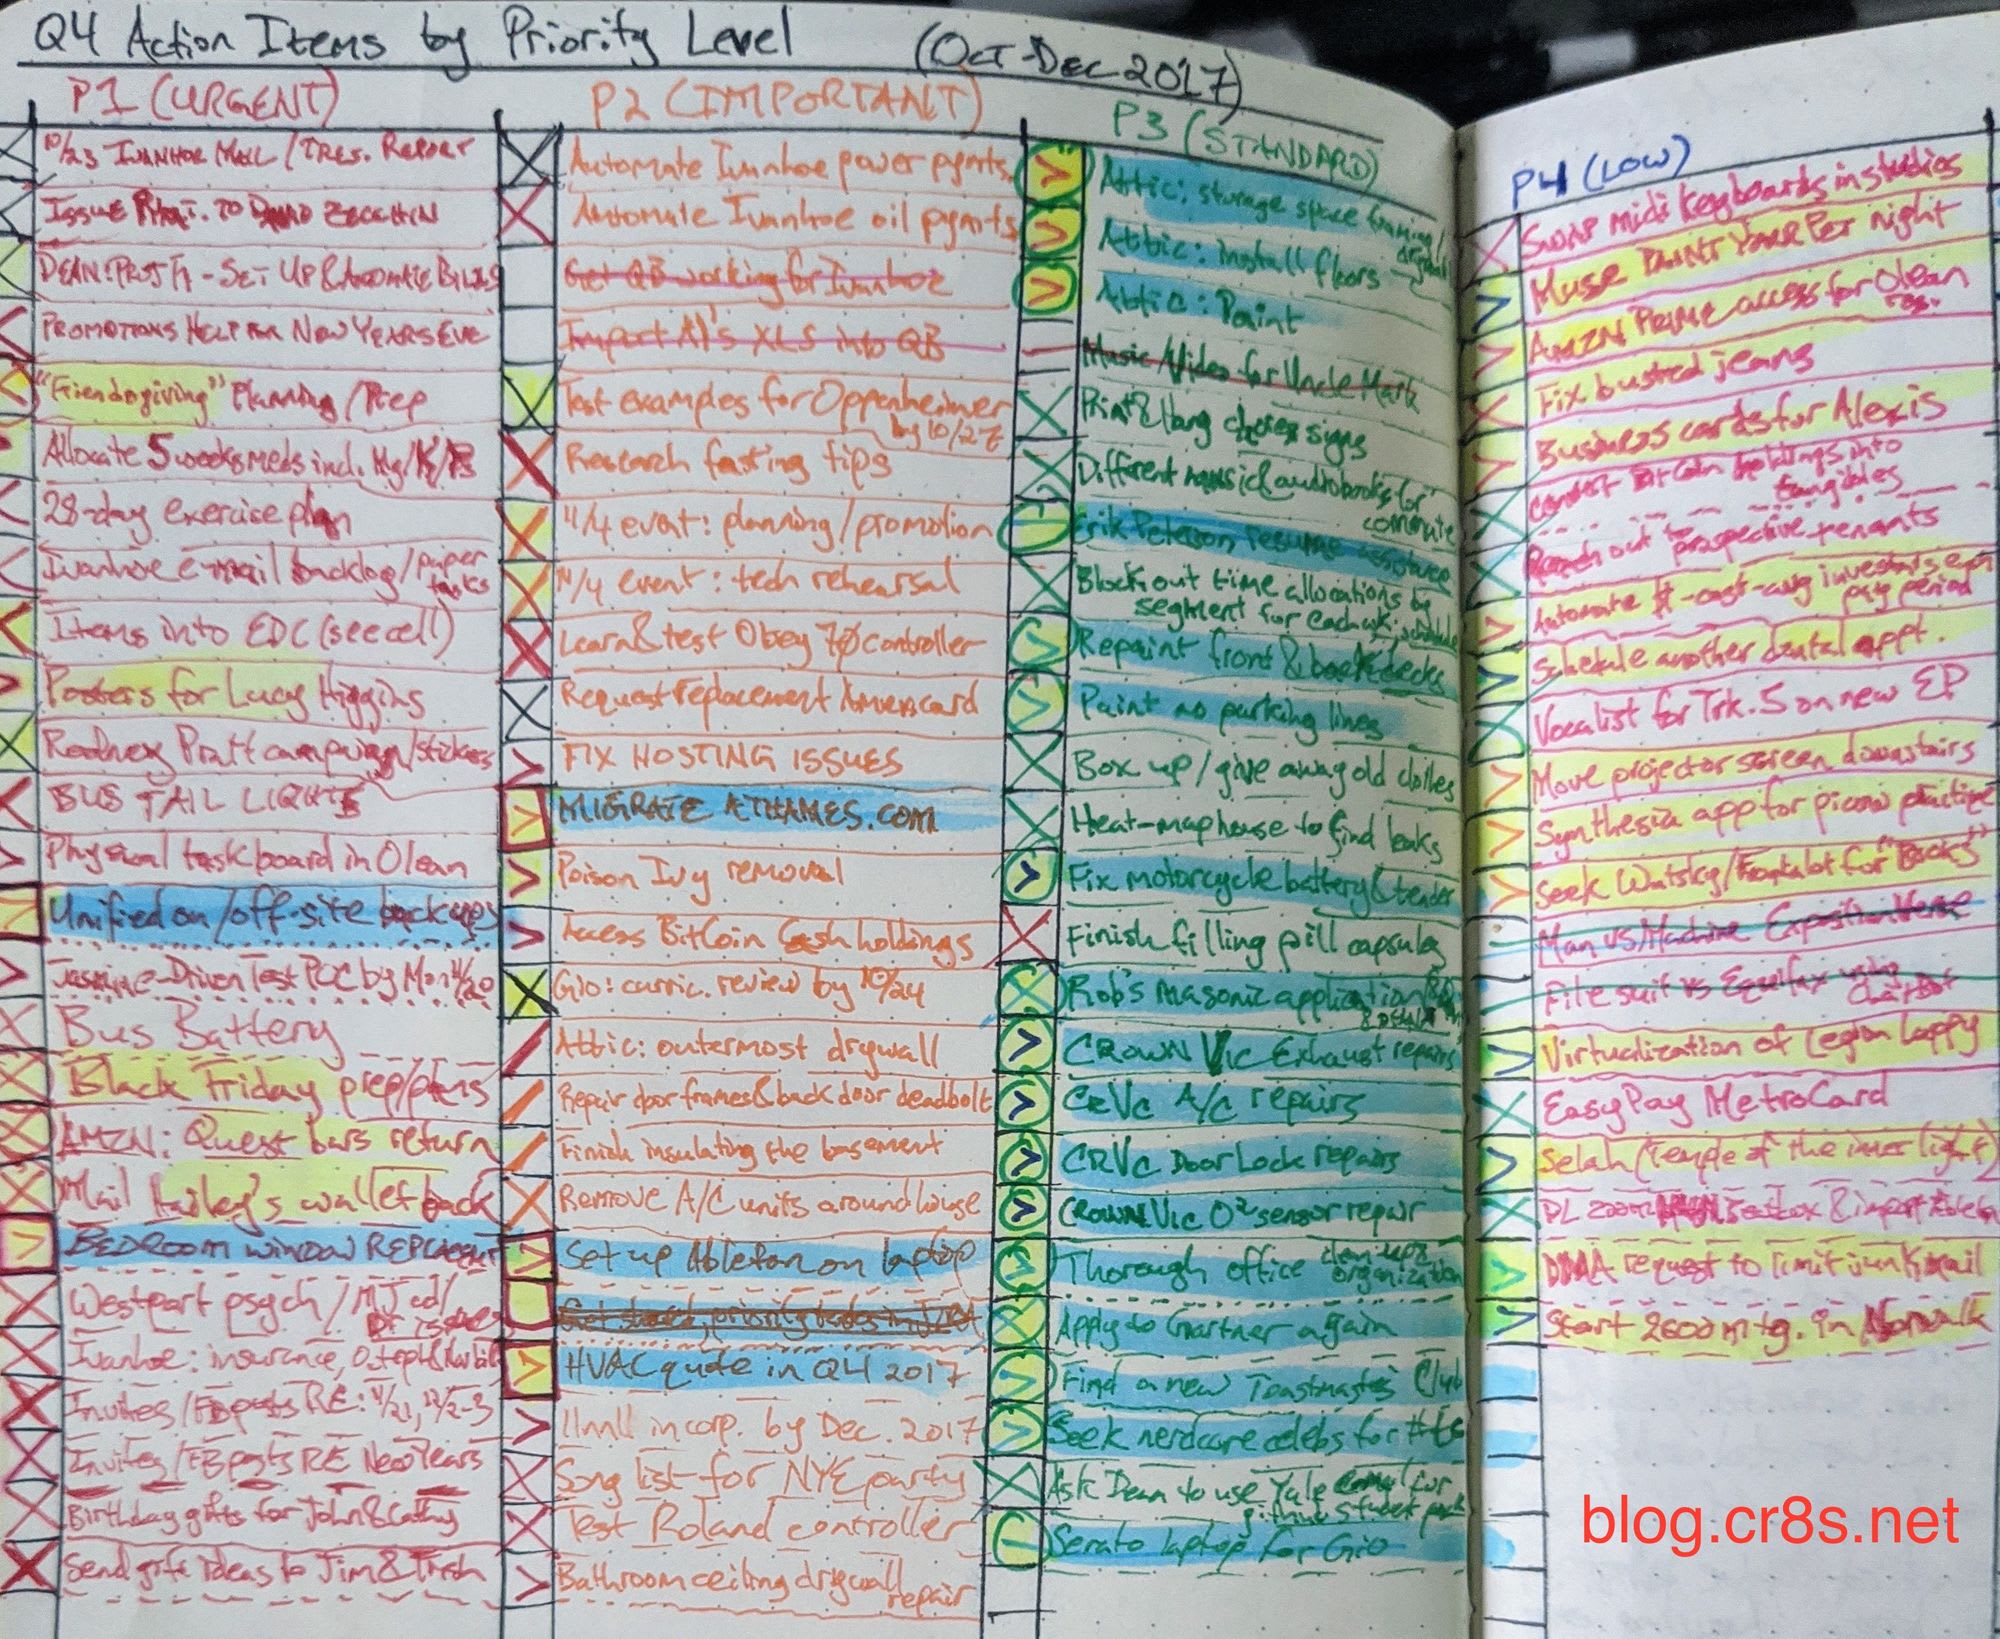 Q4 Action Items by Priority Level (Oct-Dec 2017)
P1 (URGENT)
10/23 IVANHOE MAIL / TRES. REPORT
ISSUE TO ZECCHIN
DEAN: - SET UP & AUTOMATE BILLS
PROMOTIONS HELP FOR NEW YEARS EVE
"Friendsgiving" Planning / Prep
Allocate 5 weeks meds incl. Mg/K/
28-day exercise plan
Ivanhoe e-mail backlog / paper
tasks
Items into EDC (see cell)
Posters for Lucy Higgins
Rodney Pratt campaign/stickers
BUS TAIL LIGHTS
Physical task board in Olean
Unified on/off-site backups
Jasmine-Driven Test POC by Mon 11/20
Bus Battery
Black Friday prep/plans
AMZN: Quest bars return
Mail Hailey's wallet back
BEDROOM WINDOW REPLACEMENT
Westport psych /
Ivanhoe: insurance,
Invites / FB posts RE: 11/21, 12/2-3
Invites / FB posts RE New Years
Birthday gifts for John & Cathy
Send gift ideas to Jim & Trish
P2 (IMPORTANT)
Automate Ivanhoe power pymts
Automate Ivanhoe oil pymts
Get QB working for Ivanhoe
Import Al's XLS into QB
Test examples for Oppenheimer
by 10/27
Research fasting tips
11/4 event: planning/promotion
11/4 event: tech rehearsal
Learn & test Obey 70 controller
Request replacement Amex card
FIX HOSTING ISSUES
MIGRATE ATHAMES.COM
Poison Ivy removal
Access BitCoin Cash holdings
Gio: curric. review by 10/24
Attic: outermost drywall
Repair door frames & back door deadbolt
Finish insulating the basement
Remove A/C units around house
Set up Ableton on laptop
HVAC quote in Q4 2017
incorp. by Dec. 2017
Song list for NYE party
Test Roland controller
Bathroom ceiling drywall
repair
P3 (STANDARD)
Attic: storage space framing/
drywall
Attic: install floors
Attic: Paint
Music Video for Uncle Mark
Print & Hang signs
Different music & audiobooks for
commute
Erik Peterson resume assistance
Block out time allocations by
segment for each wk schedule
Repaint front & back decks
Paint no parking lines
Box up / give away old clothes
Heat-map house to find leaks
Fix motorcycle battery & tender
Finish filling pill capsules
Rob's masonic application
CROWN VIC Exhaust repairs
CRVC A/C repairs
CRVC Door Lock repairs
CROWN VIC O2 sensor repair
Thorough office clean-up &
organization
Apply to Gartner again
Find a new Toastmasters Club
Seek nerdcore celebs for
Ask Dean to use Yale for
github student pack
Serato laptop for Gio
P4 (LOW)
Swap midi keyboards in studios
Muse PAINT YOUR PET night
AMZN PRIME access for Olean
Fix busted jeans
Business cards for Alexis
Convert BitCoin holdings into
tangibles
Reach out to prospective tenants
Automate $-cost-avg investments each
pay period
Schedule another dental appt.
Vocalist for Trk. 5 on new EP
Move projector screen downstairs
Synthesia app for piano practice
Seek Watsky/Frontalot for "Books"
Man vs/Machine Exposition Verse
File suit vs Equifax using
ChatBot
Virtualization of Legion lappy
EasyPay MetroCard
Selah (Temple of the inner light)
DMA request to limit junk mail
Start 2600 mtg. in Norwalk
blog.cr8s.net